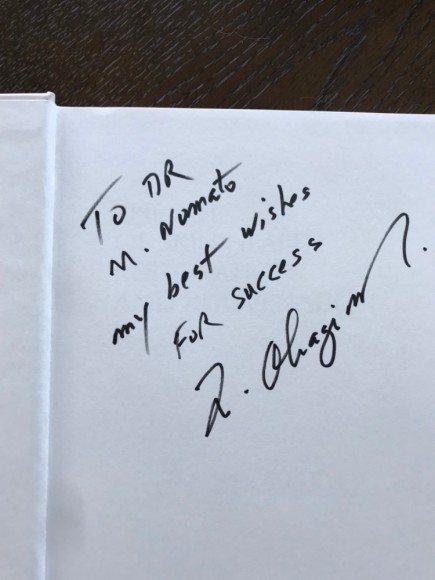 To DR
M. Nomato
my best wishes
FOR success